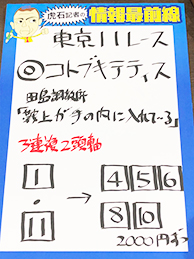 虎石記者の
情報最前線
東京11レース
◎コトブキテティス
田島調教師
「賞上がりの内に入れて〜」
3連複2頭軸
1・11→4 5 6
8 10
2000円ずつ